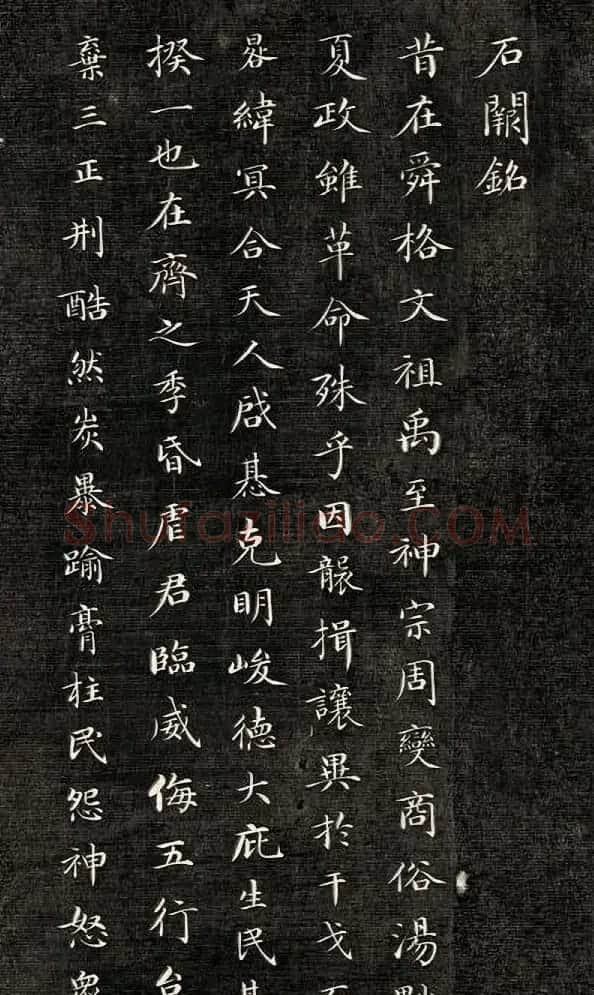 石闕銘
昔在舜格文祖禹至神宗周變商俗湯黜
夏政雖革命殊乎因襲揖讓異於干戈而
晷緯冥合天人啟惎克明峻德大庇生民其
揆一也在齊之季昏虐君臨威侮五行怠
棄三正刑酷然炭暴踰膏柱民怨神怒眾
Shufaziliao.COM